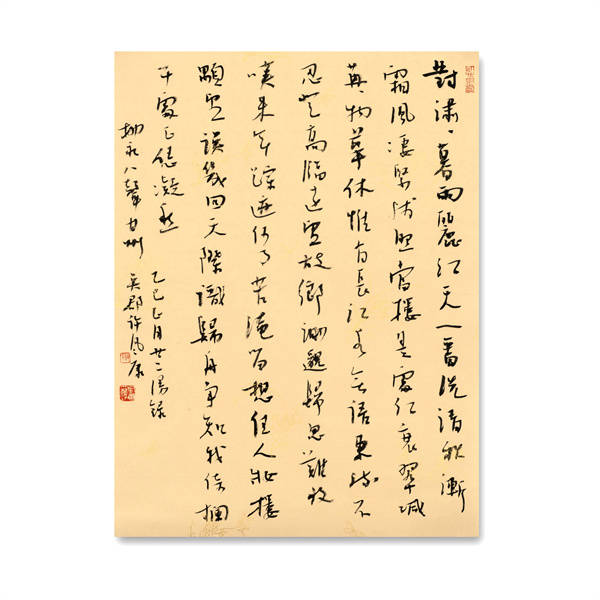 對瀟々暮雨灑江天一番洗清秋漸
霜風淒緊殘照當樓是處紅衰翠減
苒々物華休惟有長江水無語東流不
忍登高臨遠望故鄉渺邈歸思難收
嘆來年蹤跡何事苦淹留想佳人妝樓
顒望誤幾回天際識歸舟爭知我倚欄
干處正恁凝愁
柳永八聲甘州
乙巳正月廿二錄
吳郡許風康